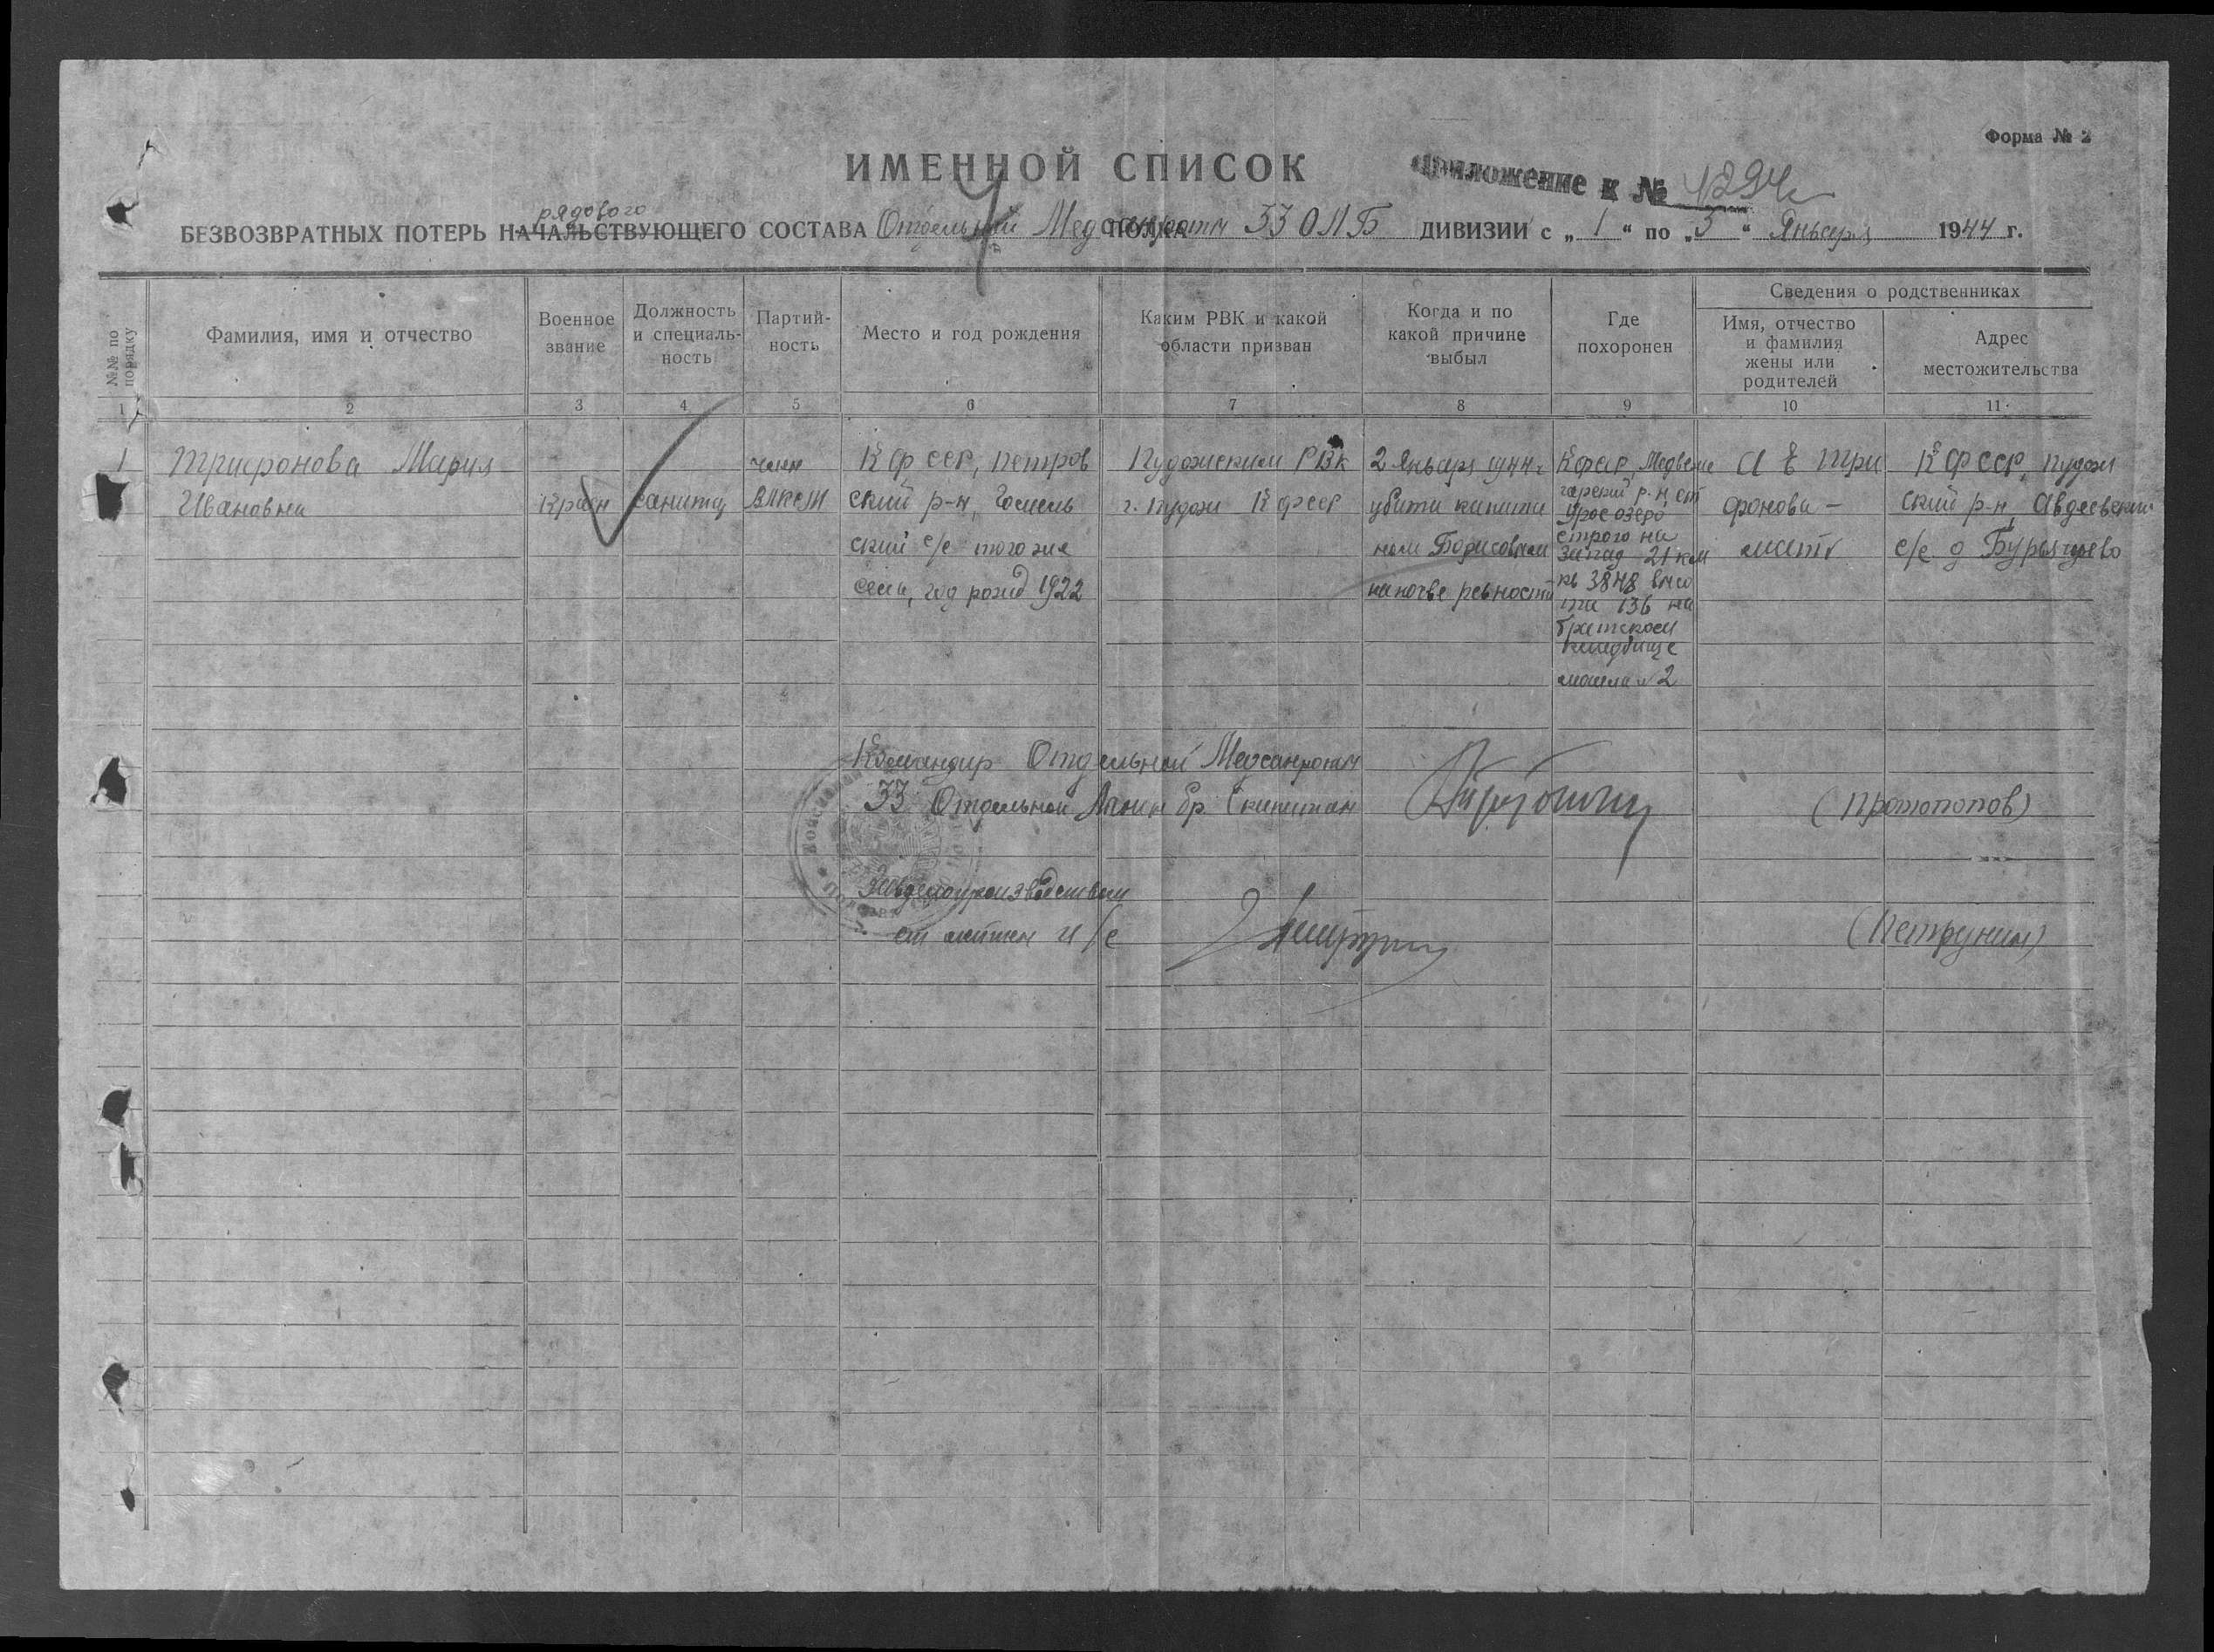 Форма № 2
ИМЕННОЙ СПИСОК
приложение к № 1294с
рядового
БЕЗВОЗВРАТНЫХ ПОТЕРЬ НАЧАЛЬСТВУЮЩЕГО СОСТАВА Отдельной Медсанроты 33 ОЛБ ДИВИЗИИ с „ 1 “ по „ 5 “ Января 1944 г.
№№ по порядку
Фамилия, имя и отчество
Военное
звание
Должность
и специаль-
ность
Партий-
ность
Место и год рождения
Каким РВК и какой
области призван
Когда и по
какой причине
выбыл
Где
похоронен
Сведения о родственниках
Имя, отчество
и фамилия
жены или
родителей
Адрес
местожительства
1 2 3 4 5 6 7 8 9 10 11
1
Трифонова Мария
Ивановна
Красн
санит
член
ВЛКСМ
К ф ССР, Петров
ский р-н,
ский с/с того же
села, год рожд 1922
Пудожским РВК
г. Пудож К ф ССР
2 Января 1944 г
убита капита
ном Борисовым
на почве ревности
Кфсср, Медвеже
горский р-н ст
Урос озеро
строго на
запад 21 км
кв 3848 высо
та 136 на
братском
кладбище
могила № 2
А Е Три
фонова -
мать
К ф ССР, Пудож
ский р-н, Авдеевский
с/с. д
Командир Отдельной Медсанроты
33 Отдельной Лыжн бр. Капитан
(Протопопов)
Завделопроизводством
ст лейтен и/с
(Петрунин)